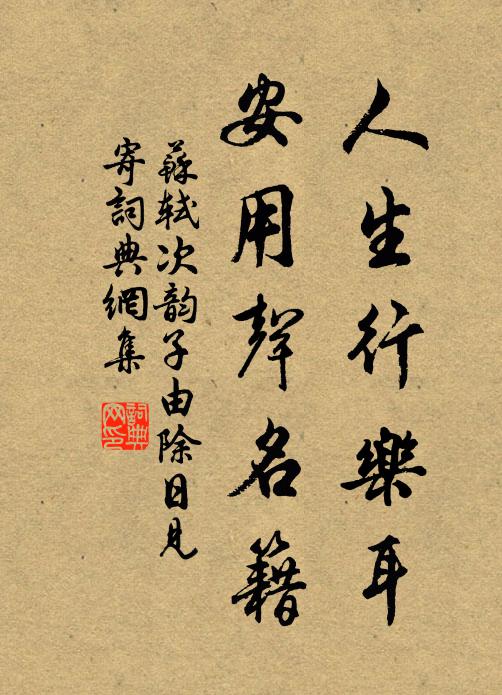 人生行樂耳
安用聲名籍
蘇軾次韵子由除日見
寄詞典網集
詞典网印